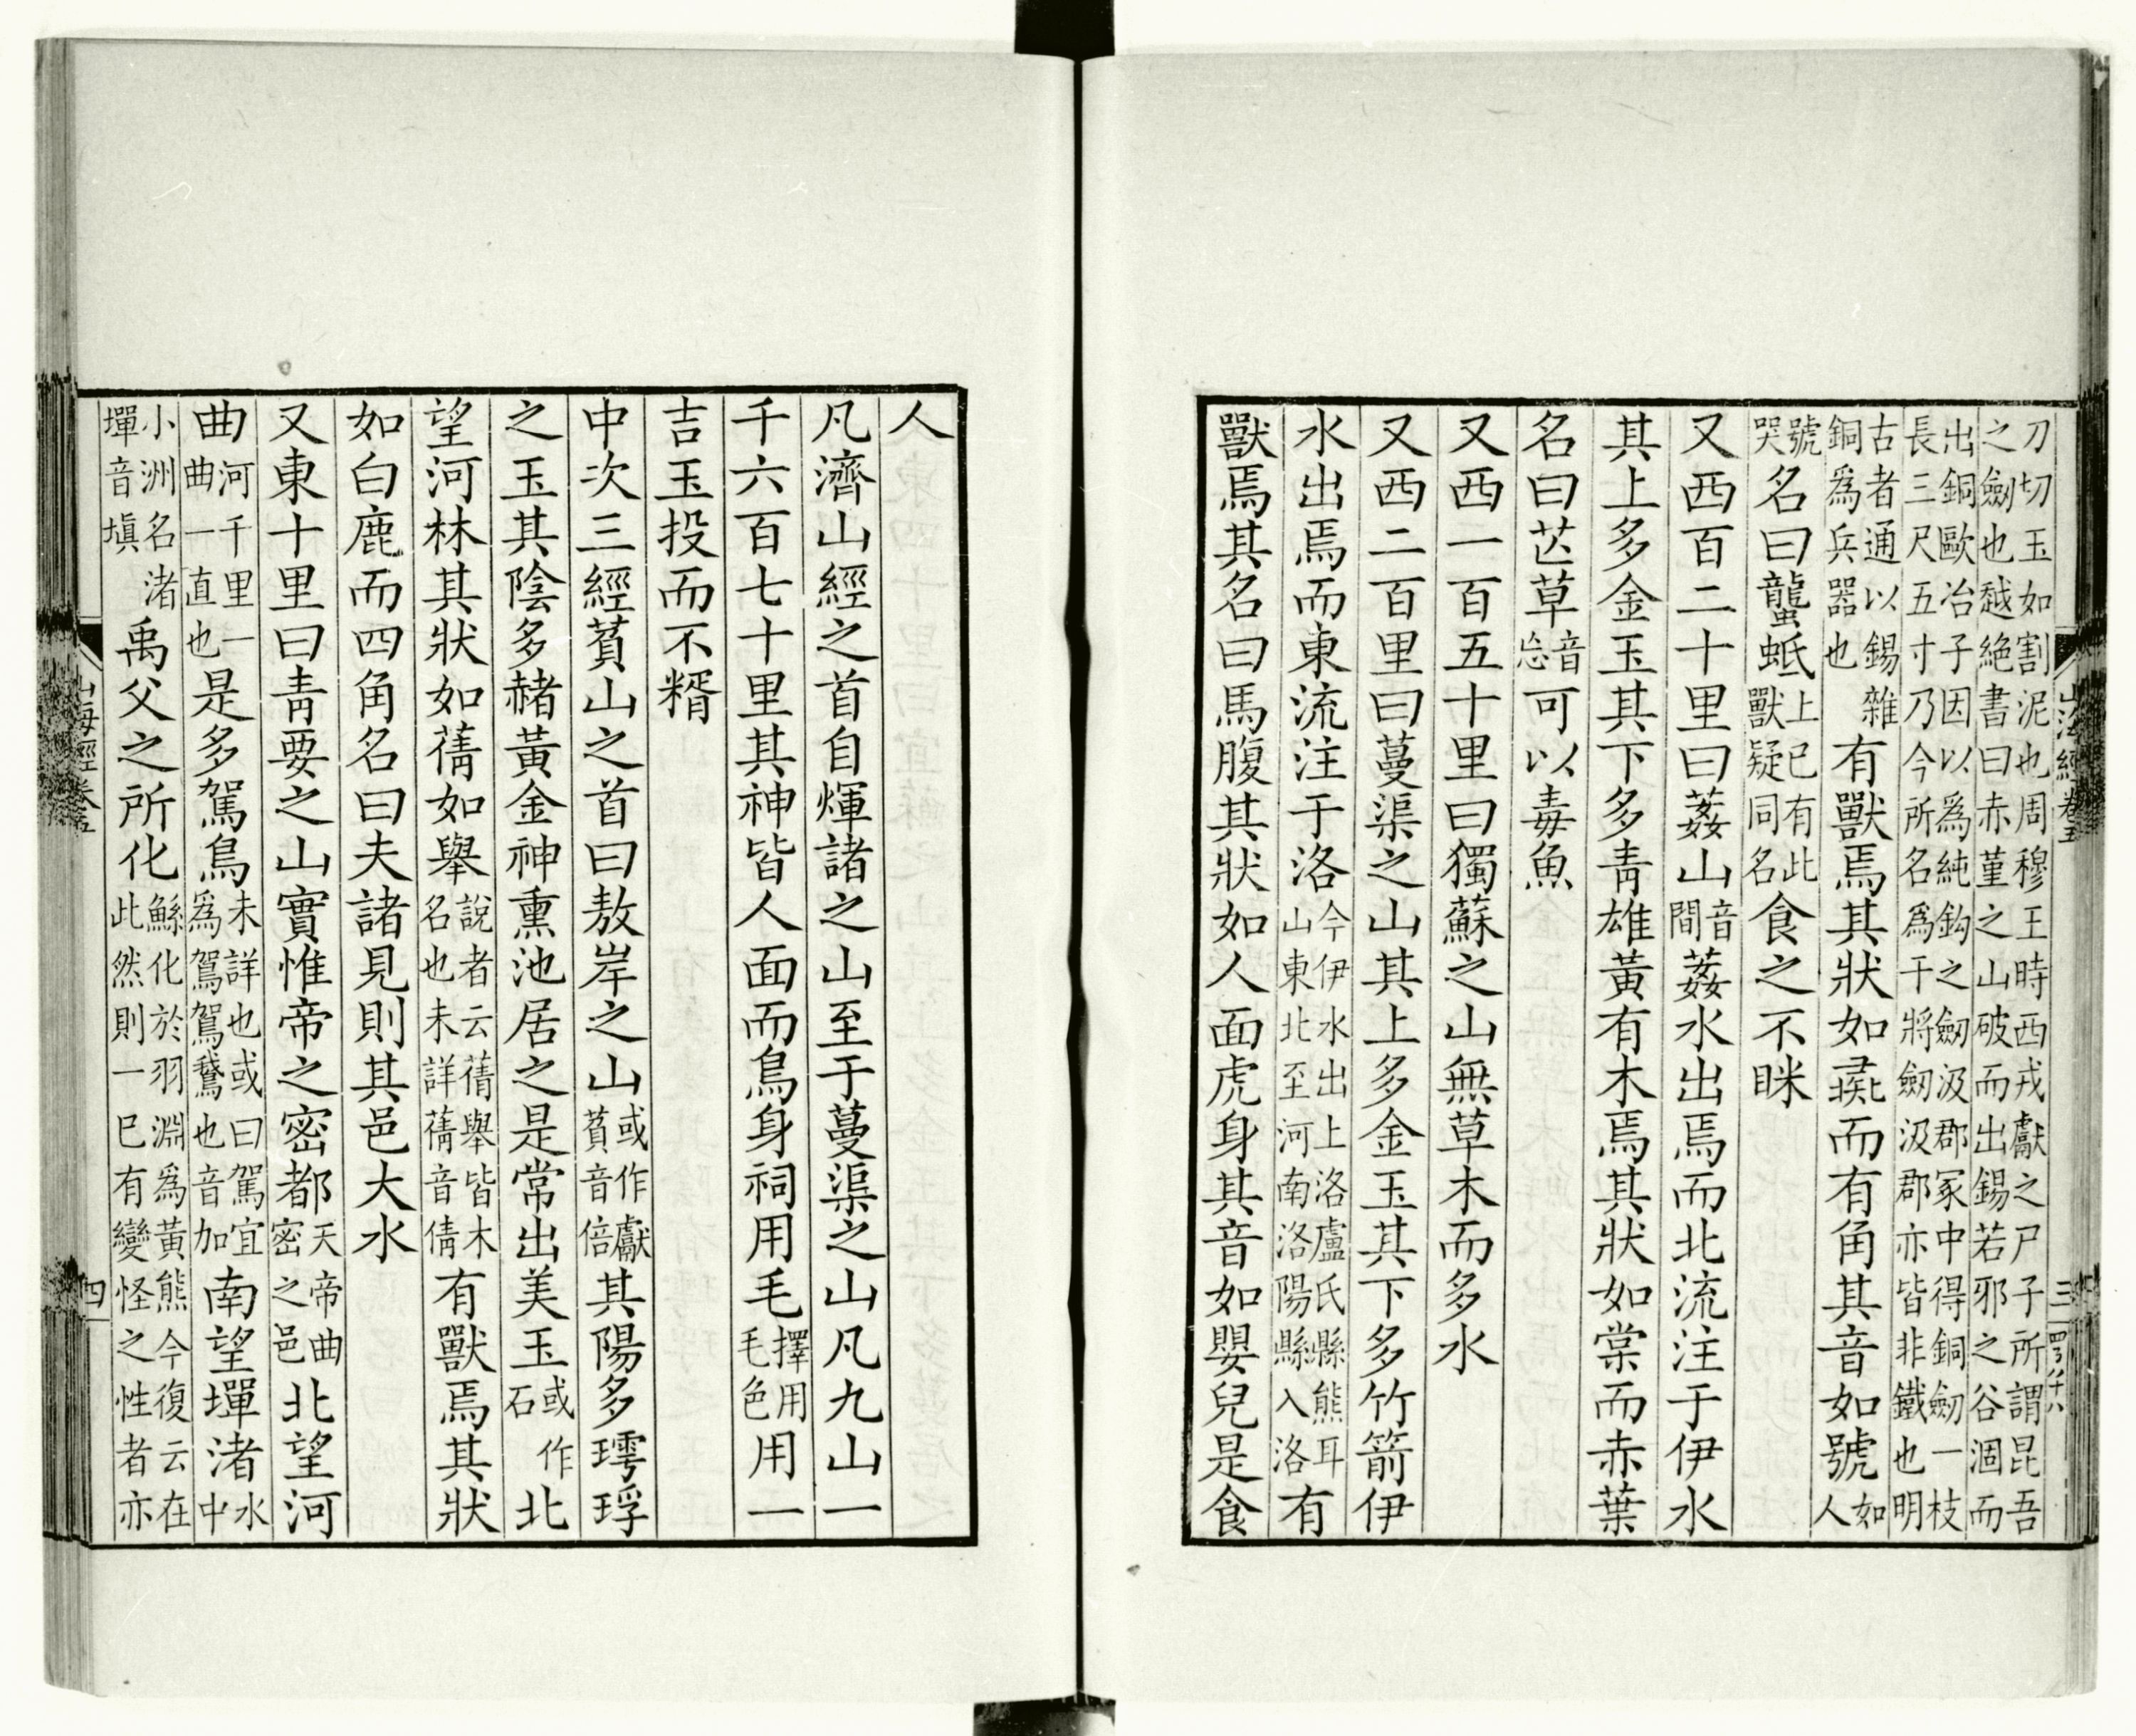 刀切玉如割泥也周穆王時西戎獻之尸子所謂昆吾
之劒也越絕書曰赤堇之山破而出錫若邪之谷涸而
出銅歐冶子因以爲純鈎之劒汲郡冢中得銅劒一枝
長三尺五寸乃今所名爲干將劒汲郡亦皆非鐵也明
古者通以錫雜銅爲兵器也有獸焉其狀如彘而有角其音如號如人
號哭名曰蠪蚳上已有此獸疑同名食之不眯
又西百二十里曰葌山音間葌水出焉而北流注于伊水
其上多金玉其下多靑雄黃有木焉其狀如棠而赤葉
名曰芒草音忘可以毒魚
又西一百五十里曰獨蘇之山無草木而多水
又西二百里曰蔓渠之山其上多金玉其下多竹箭伊
水出焉而東流注于洛今伊水出上洛盧氏縣熊耳山東北至河南洛陽縣入洛有
獸焉其名曰馬腹其狀如人面虎身其音如嬰兒是食
山海經卷五
三
人
凡濟山經之首自煇諸之山至于蔓渠之山凡九山一
千六百七十里其神皆人面而鳥身祠用毛擇用毛色用一
吉玉投而不糈
中次三經萯山之首曰敖岸之山或作獻萯音倍其陽多㻬琈
之玉其陰多赭黃金神熏池居之是常出美玉或作石北
望河林其狀如蒨如舉說者云蒨舉皆木名也未詳蒨音倩有獸焉其狀
如白鹿而四角名曰夫諸見則其邑大水
又東十里曰靑要之山實惟帝之密都天帝曲密之邑北望河
曲河千里一曲一直也是多駕鳥未詳也或曰駕宜爲駕駕鵞也音加南望墠渚水中
小洲名渚墠音塡禹父之所化鯀化於羽淵爲黃熊今復云在此然則一已有變怪之性者亦
山海經卷五
四